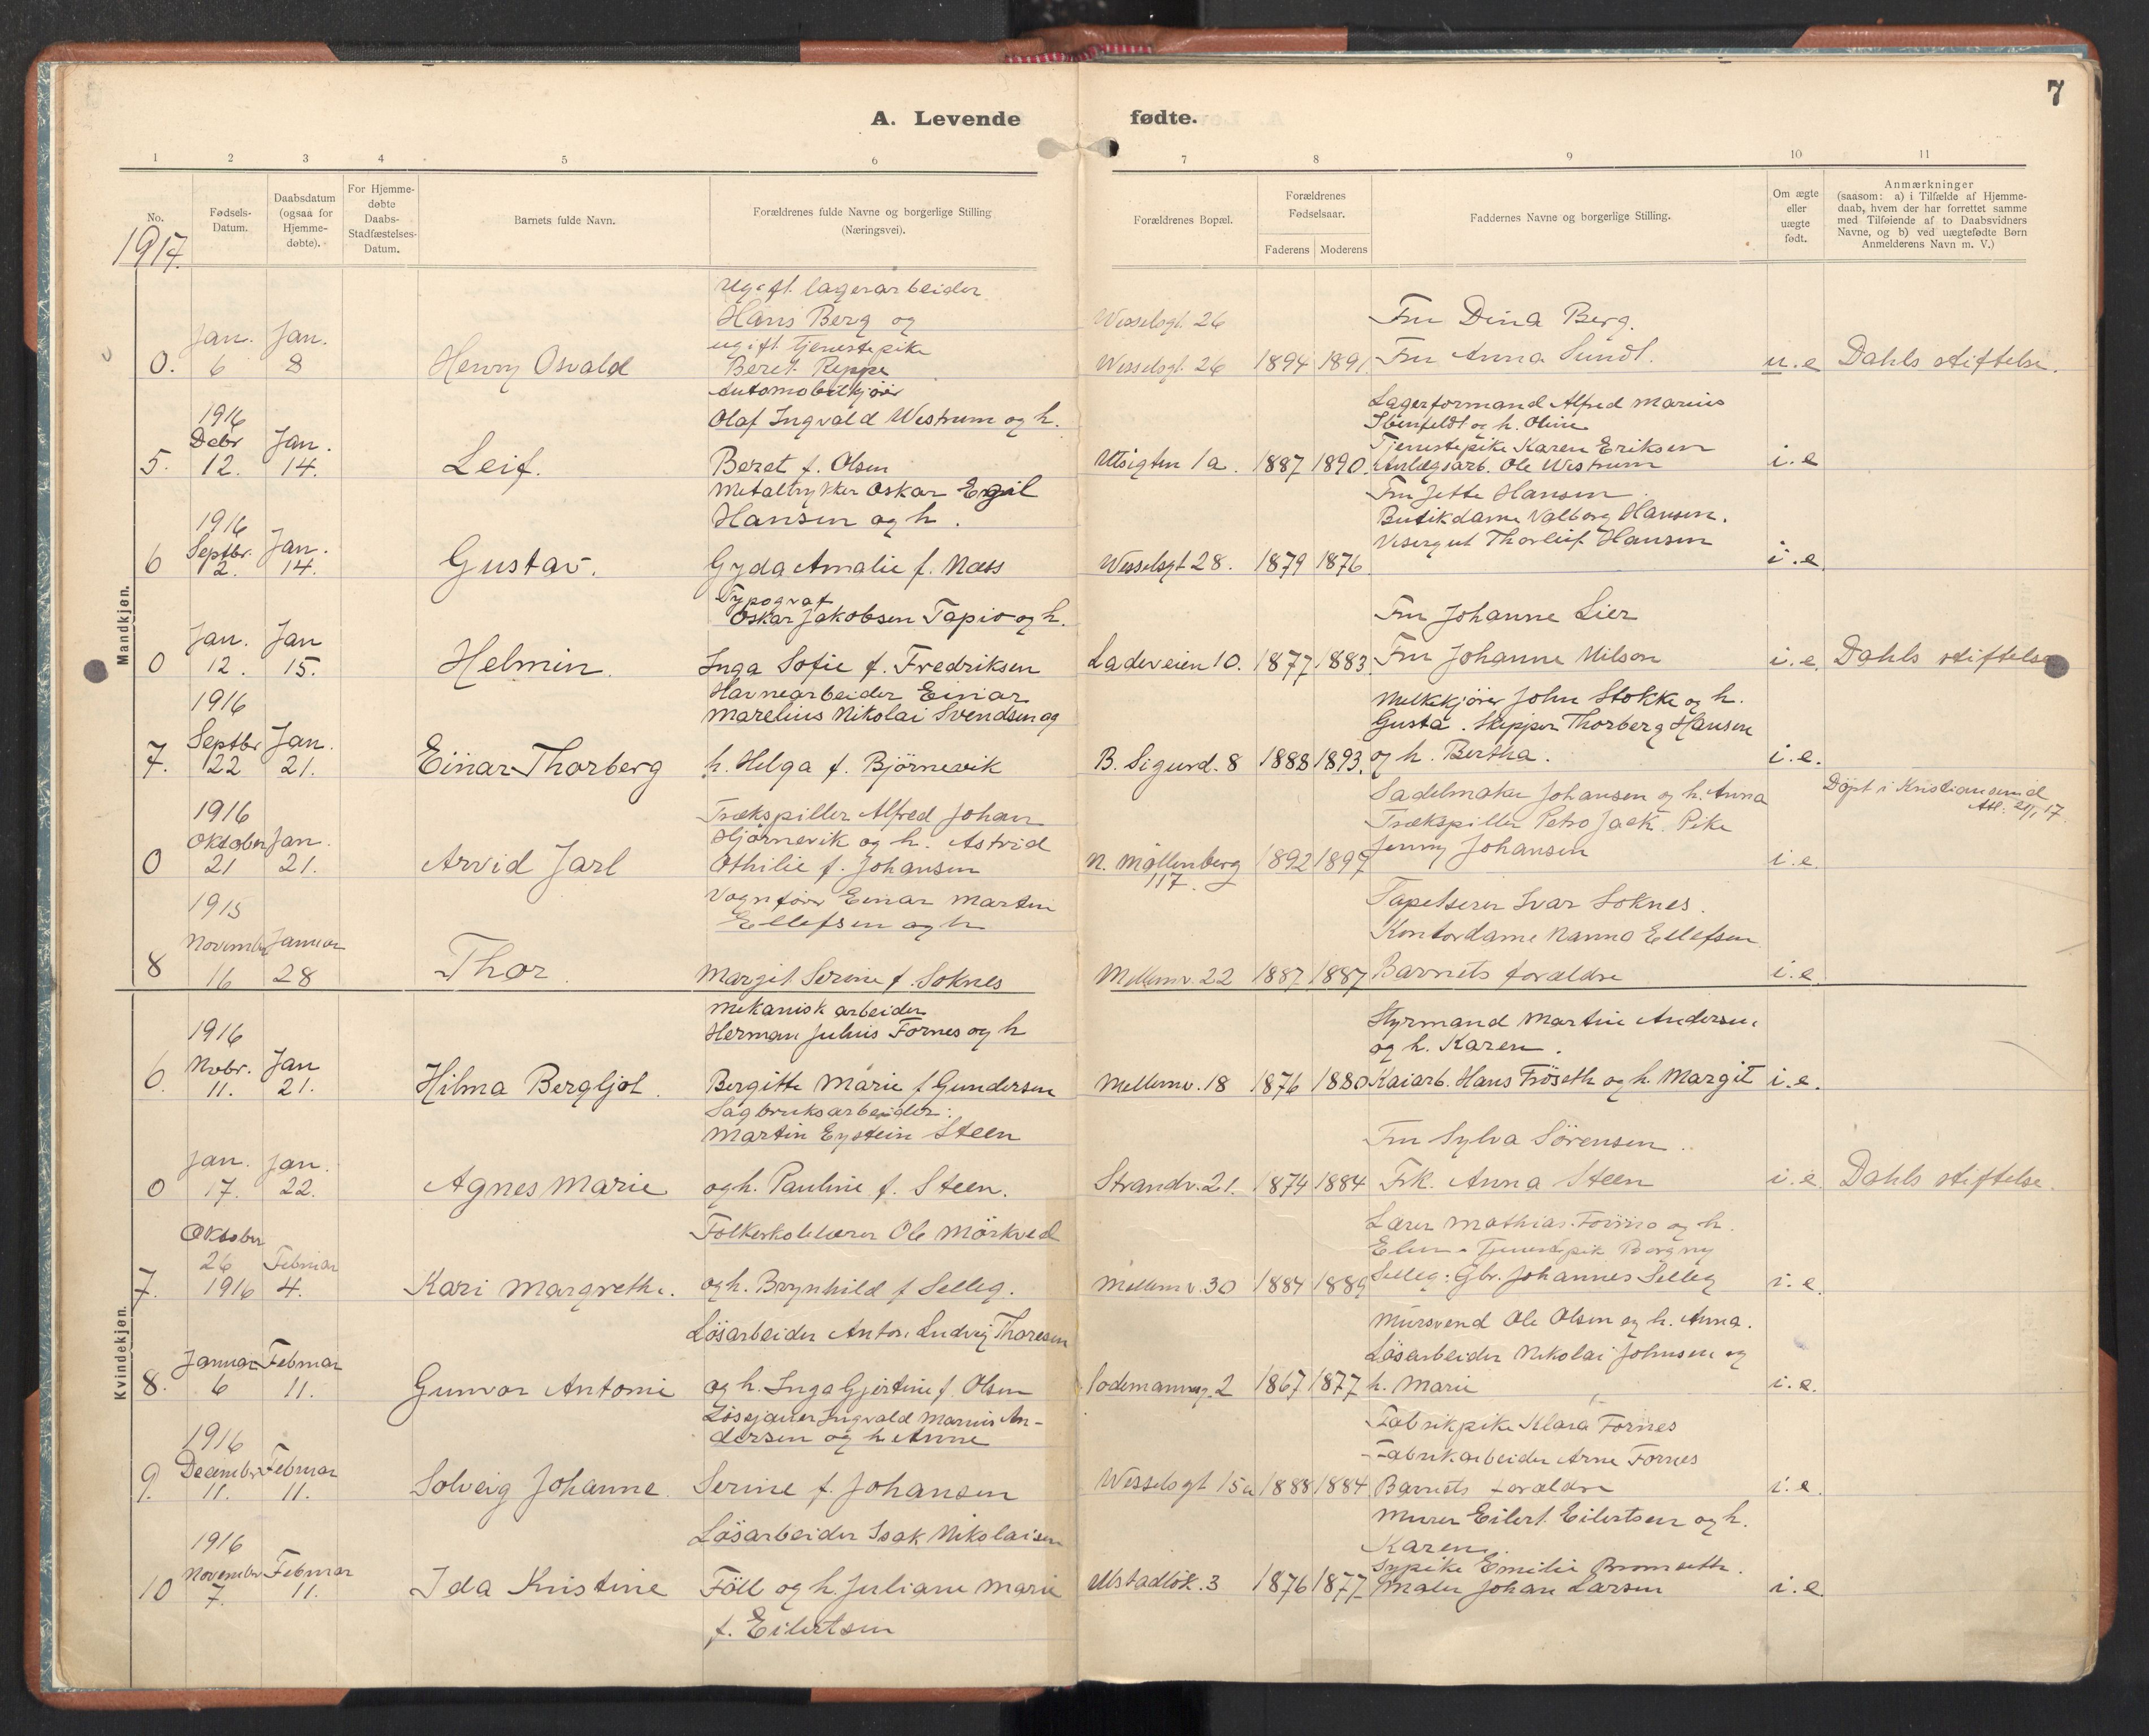 7
A. Levende fødte.
1 2 3 4 5 6 7 8 9 10 11
No.
Fødsels-
Datum.
Daabsdatum
(ogsaa for
Hjemme-
døbte).
For Hjemme-
døbte
Daabs-
Stadfæstelses-
Datum.
Barnets fulde Navn.
Forældrenes fulde Navne og borgerlige Stilling
(Næringsvei).
Forældrenes Bopæl.
Forældrenes
Fødselsaar.
Faderens Moderens
Faddernes Navne og borgerlige Stilling.
Om ægte
eller
uægte
født.
Anmærkninger
(saasom: a) i Tilfælde af Hjemme-
daab, hvem der har forrettet samme
med Tilføiende af to Daabsvidners
Navne, og b) ved uægtefødte Børn
Anmelderens Navn m. V.)
1917.
Mandkjøn.
0.
Jan.
6
Jan.
8
Henry Osvald
Ugift lagerarbeider
Hans Berg og
ugift tjenestepike
Beret Reppe
Wesselsgt. 26
Wesselsgt. 26
1894 1891
Fru Dina Berg.
Fru Anna Sundt.
u.e
Dahls stiftelse.
5.
1916
Debr
12.
Jan.
14.
Leif.
Automobilkjører
Olaf Ingvald Westrum og h.
Beret f. Olsen
Utsigten 1a.
1887 1890.
Lagerformand Alfred Marius
Ibenfeldt og h. Oline
Tjenestepike Karen Eriksen
Anlægsarb. Ole Westrum
i.e
6
1916
Septbr.
12.
Jan.
14.
Gustav.
Metaltrykker Oskar Egil
Hansen og h.
Gyda Amalie f. Næss
Wesselsgt 28.
1879 1876
Fru Jette Hansen.
Butikdame Valborg Hansen.
Visergut Thorleif Hansen
i.e
0
Jan.
12.
Jan
15.
Helmin.
Typograf
Oskar Jakobsen Tapio og h.
Inga Sofie f. Fredriksen
Ladeveien 10.
1877 1883
Fru Johanne Lier
Fru Johanne Nilson
i.e.
Dahls stiftelse
7.
1916
Septbr
22
Jan.
21.
Einar Thorberg
Havnearbeider Einar
Marelius Nikolai Svendsen og
h. Helga f. Björnevik
B. Sigurd. 8
1888 1893.
Melkekjører John Stokke og h.
Gusta. Skipper Thorberg Hansen
og h. Bertha.
i.e.
0
1916
Oktober
21
Jan.
21.
Arvid Jarl
Trækspiller Alfred Johan
Hjørnevik og h. Astrid
Othilie f. Johansen
N. Möllenberg
117.
1892 1897
Sadelmaker Johansen og h. Anna
Trækspiller Petro Jack. Pike
Jenny Johansen
i.e.
Döpt i Kristiansund
Att. 21/1 17.
8
1915
November
16
Januar
28
Thor.
Vognfører Einar Martin
Ellefsen og h
Margit Serine f. Soknes
Mellemv. 22
1887 1887
Tapetserer Ivar Soknes.
Kontordame Nanna Ellefsen
Barnets forældre
i.e.
Kvindekjøn.
6.
1916
Nobr.
11.
Jan
21.
Hilma Bergljot.
Mekanisk arbeider
Herman Julius Fornes og h
Bergitte Marie f Gundersen
Mellemv. 18
1876 1880
Styrmand Martin Andersen
og h. Karen.
Kaiarb. Hans Fröseth og h. Margit
i.e.
0
Jan.
17.
Jan.
22.
Agnes Marie
Sagbruksarbeider.
Martin Eystein Steen
og h. Pauline f. Steen.
Strandv. 21.
1874 1884
Fru Sylva Sörensen.
Frk. Anna Steen
i.e.
Dahls stiftelse.
7.
Oktober
26
1916
Februar
4.
Kari Margrethe.
Folkeskolelærer Ole Mörkved
og h. Brynhild f Selleg.
Mellemv. 30
1884 1889
Lærer Mathias
og h.
Tjenestepik Borgny
Selleg: Gbr. Johannes Selleg
i.e.
8.
Januar
6
Februar
11.
Gunvor Antonie
Løsarbeider Anton Ludvig Thoresen
og h. Inga Gjertine f. Olsen
Lodemannsg. 2
1867 1877
Mursvend Ole Olsen og h. Anna.
Løsarbeider Nikolai Johnsen og
h. Marie
i.e.
9.
1916
December
11.
Februar
11.
Solveig Johanne
Løsejarer Ingvald Marius An-
dersen og h Anne
Serine f. Johansen
Wesselsgt 15a
1888 1884
Fabrikpike Klara Fornes
Fabrikarbeider Arne Fornes
Barnets forældre
i.e.
10
1916
November
7.
Februar
11.
Ida Kristine
Løsarbeider Isak Nikolaisen
Föll og h. Juliane Marie
f. Eilertsen
Ulstadløk. 3
1876 1877
Murer Eilert Eilertsen og h.
Karen.
Sypike Emilie Bromseth.
Maler Johan Larsen
i.e.